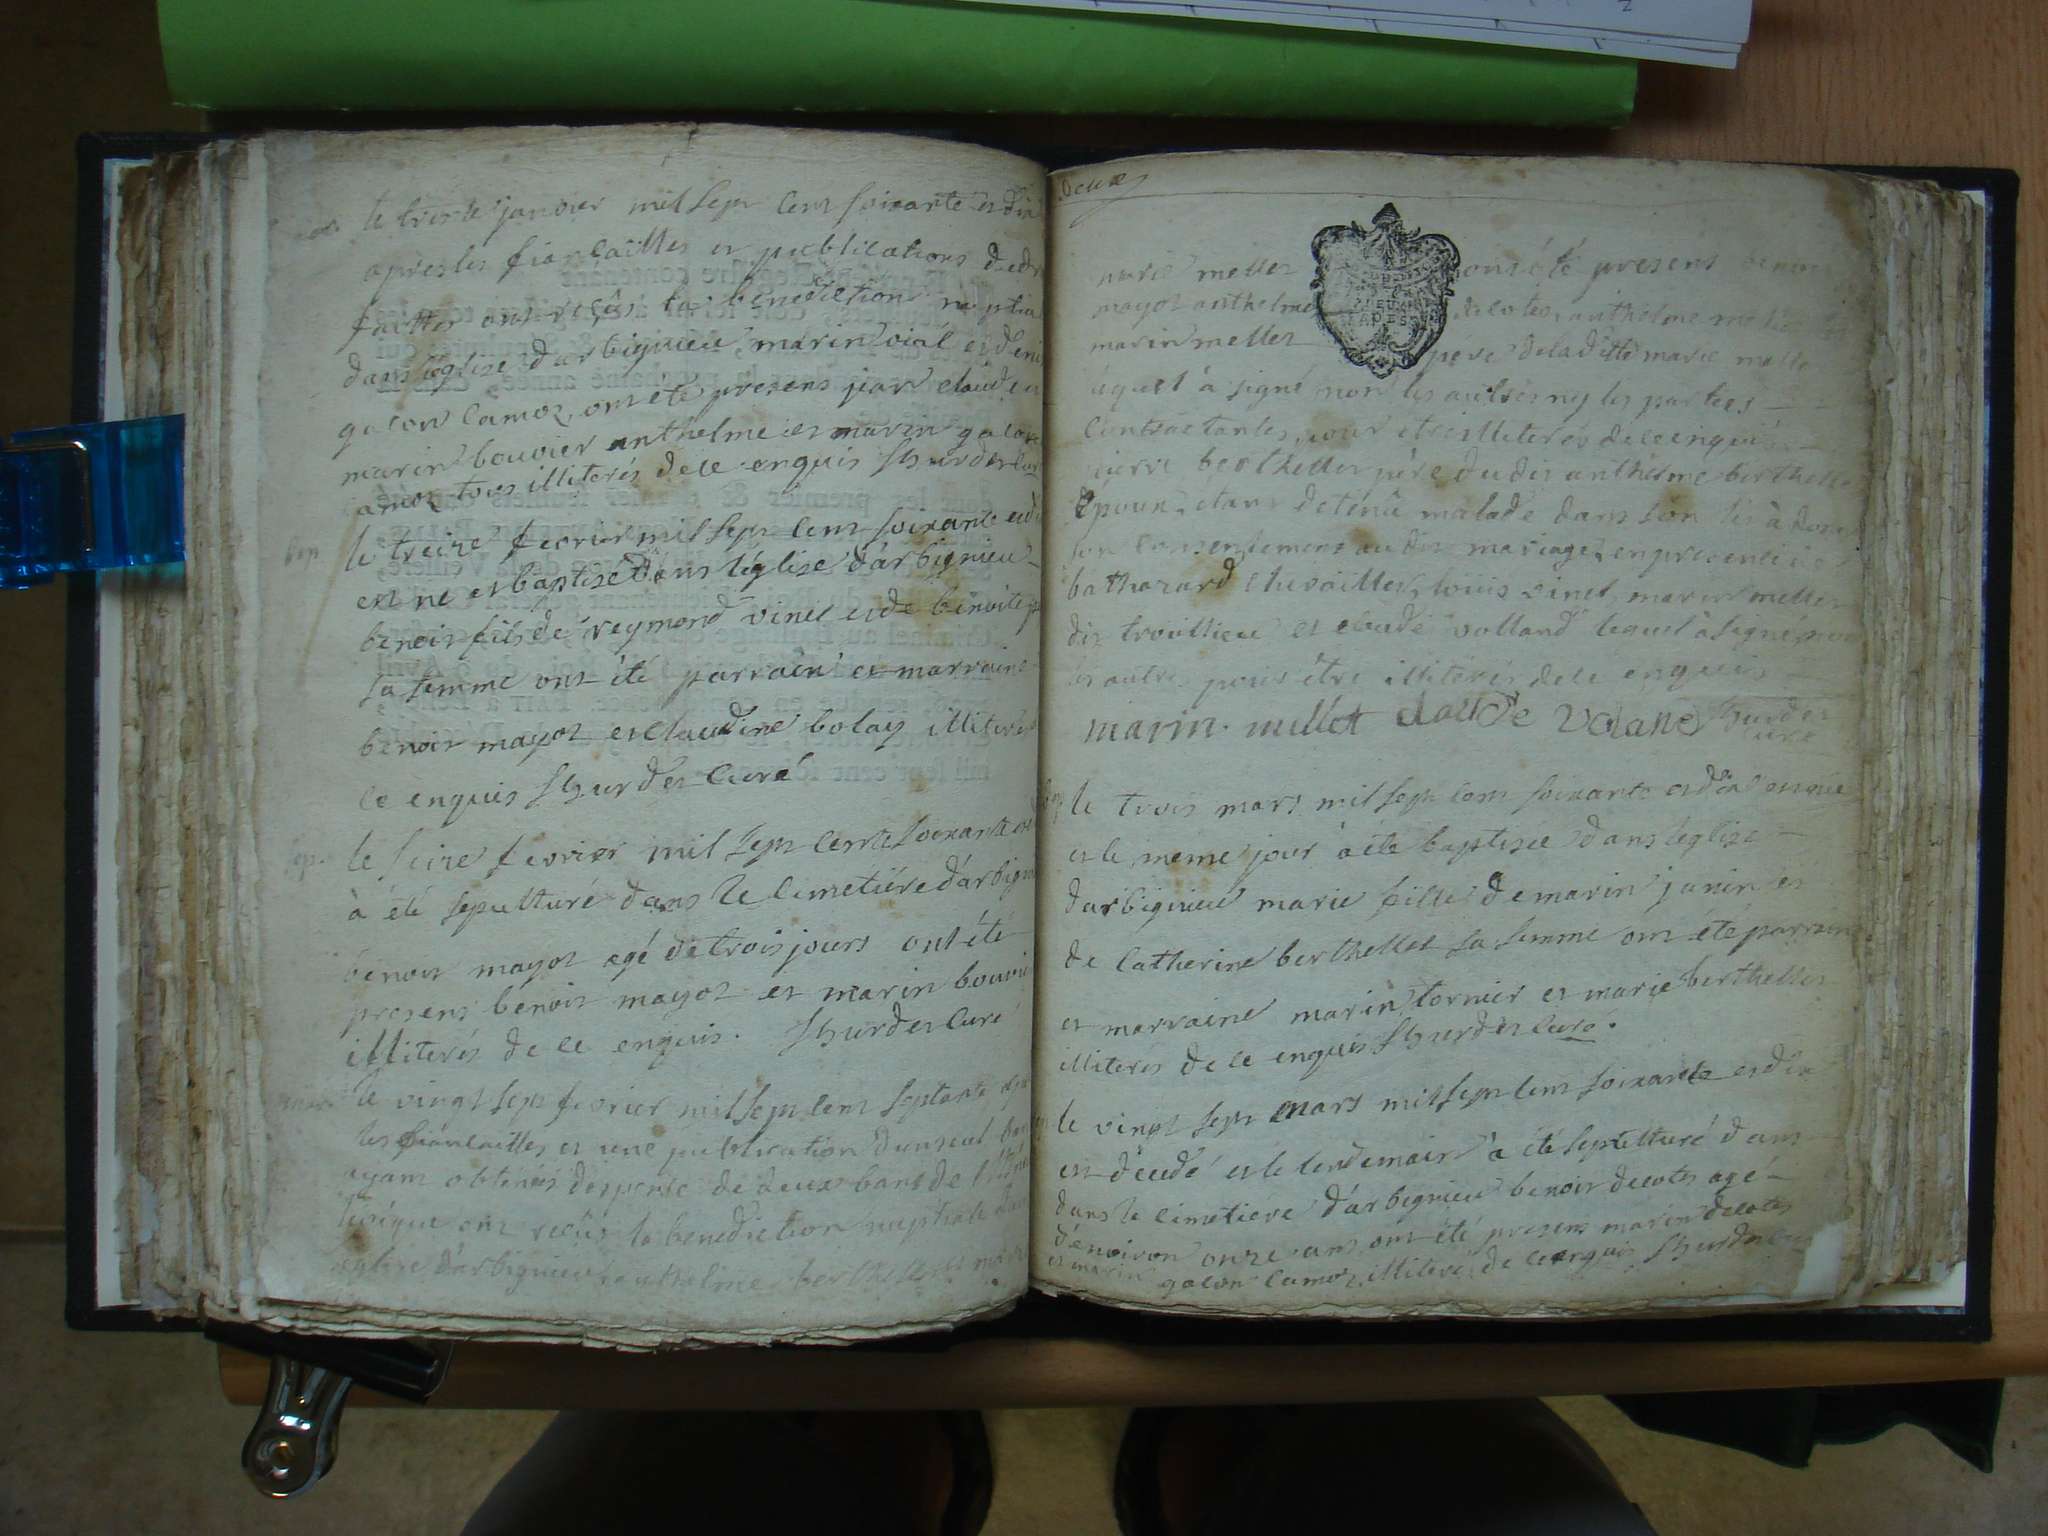 le trente janvier mil sept cent soixante et dix
apres les fiancailles et publications
faittes ont reçûs la benediction nuptiale
dans léglise d'arbignieu marin vial et
gacon lamoz, ont été presens par claude
marin bouvier anthelme et marin gacon
lamoz tous illiterés de ce enquis hurdet curé
bap. le treize fevrier mil sept cent soixante et dix
est ne et baptisé dans léglise d'arbignieu
benoit fils de reymond vinet et de benoite
sa femme ont été parrain et marraine
benoit mayot et claudine bolay illiteres de
ce enquis hurdet curé
sep. le seize fevrier mil sept cent soixante et
à été sepulturé dans le cimetiére d'arbignieu
benoit mayot agé de trois jours ont été
presens benoit mayot et marin bouvier
illiterés de ce enquis. hurdet curé
mar. le vingt sept fevrier mil sept cent septante
les fiancailles et une publication d'un seul ban
ayant obtenus dispense de deux bans de
ont reçûs la benediction nuptiale
eglise d'arbignieu anthelme berthellet
Deux
marie mellet ont été presens benoit
mayot anthelme decotes, anthelme
marin mellet pére de la ditte marie mellet
lequel à signé non les autres ny les parties
contractantes, pour etre illiterés de ce enquis
pierre berthellet pére du dit anthelme berthellet
epoux, etant detenû malade dans son lit à donné
son consentement au dit mariage, en presence de
bathazard chevaillet, louis vinet, marin mellet
dit trouillieu et claude volland lequel à signé non
les autres pour être illiterés de ce enquis
marin. mellet claude voland hurdet
curé
le trois mars mil sept cent soixante et dix est née
et le méme jour à été baptisée dans léglise
d'arbignieu marie fille de marin janin et
de catherine berthellet sa femme ont été parrain
et marraine marin tornier et marie berthellet
illiterés de ce enquis hurdet curé.
le vingt sept mars mil sept cent soixante et dix
est décedé et le lendemain à été sepulturé dans
dans le cimetiére d'arbignieu benoit decotes agé
d'environ onze ans, ont été presens marin decotes
et marin gacon lamoz, illiteré de ce enquis hurdet curé